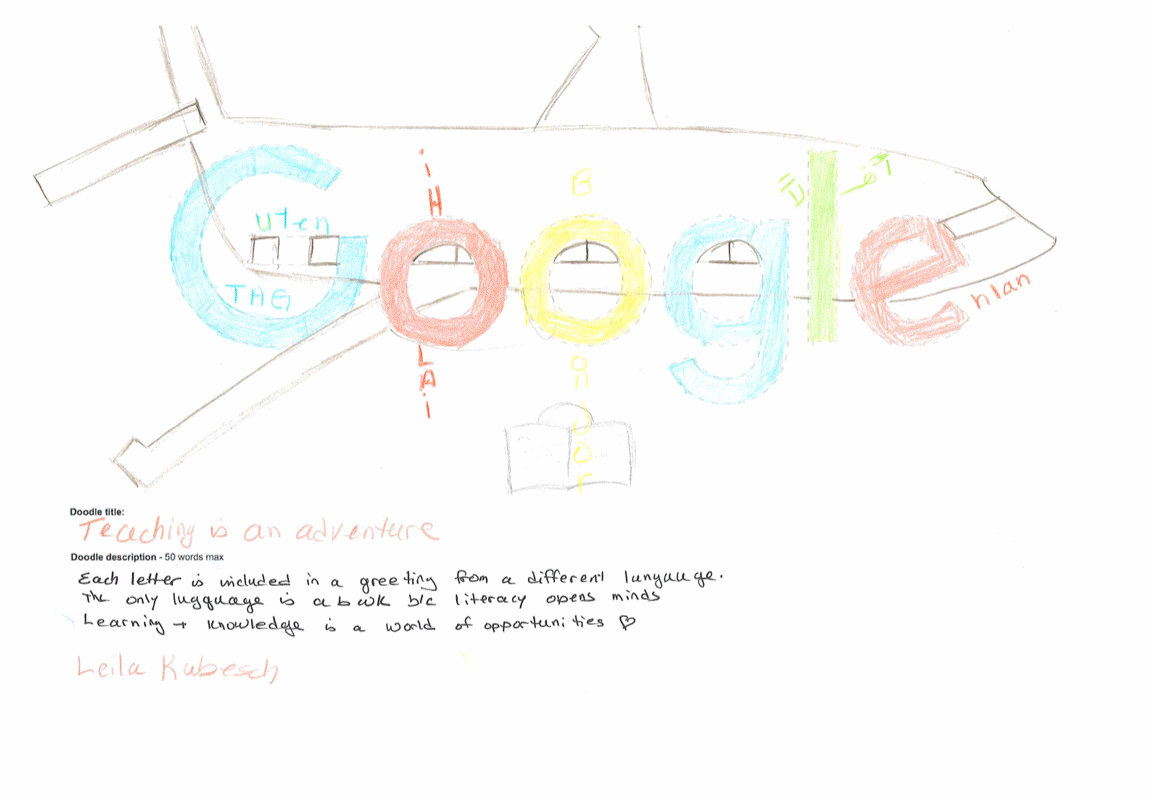 Google
uten
TAG
i
H
L
A
i
B
O
n
J
O
r
hlan
Doodle title:
Teaching is an adventure
Doodle description - 50 words max
Each letter is included in a greeting from a different language.
The only lugguage is a book b/c literacy opens minds
Learning + knowledge is a world of opportunities ♡
Leila Kubesch